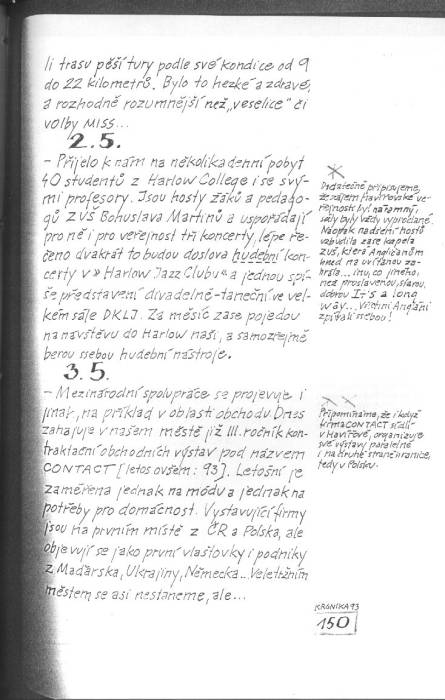 li trasu pěší túry podle své kondice od 9
do 22 kilometrů. Bylo to hezké a zdravé,
a rozhodně rozumnější než „veselice" či
volby MISS...
2.5.
- Přijelo k nám na několikadenní pobyt
40 studentů z Harlow College i se svý-
mi profesory. Jsou hosty žáků a pedago-
gů ZUŠ Bohuslava Martinů a uspořádají
pro ně i pro veřejnost tři koncerty, lépe ře-
čeno dvakrát to budou doslova hudební kon-
certy v » Harlow Jazz Clubu « a jednou spí-
še představení divadelně-taneční ve vel-
kém sále DKLJ. Za měsíc zase pojedou
na návštěvu do Harlow naši, a samozřejmě
berou ssebou hudební nástroje.
3.5.
- Mezinárodní spolupráce se projevuje i
jinak, na příklad v oblasti obchodu. Dnes
zahajuje v našem městě již III. ročník kon-
traktační obchodních výstav pod názvem
CONTACT [letos ovšem: 93]. Letošní je
zaměřena jednak na módu a jednak na
potřeby pro domácnost. Vystavující firmy
jsou na prvním místě z ČR a Polska, ale
objevují se jako první vlaštovky i podniky
z Maďarska, Ukrajiny, Německa... Veletržním
městem se asi nestaneme, ale...
*
Dodatečně připisujeme,
že zájem havířovské ve-
řejnosti byl nářamný,
sály byly vždy vyprodané.
Naopak nadšení hostů
vzbudila zase kapela
ZUŠ, která Angličanům
hned na uvítanou za-
hrála... inu, co jiného,
než proslavenou, starou,
dobrou It's a long
way... Všichni Angláni
zpívali ssebou!
* *
Připomínáme, že i když
firma CONTACT sídlí
v Havířově, organizuje
své výstavy paralelně
i na druhé straně hranice,
tedy v Polsku.
KRONIKA 93
150